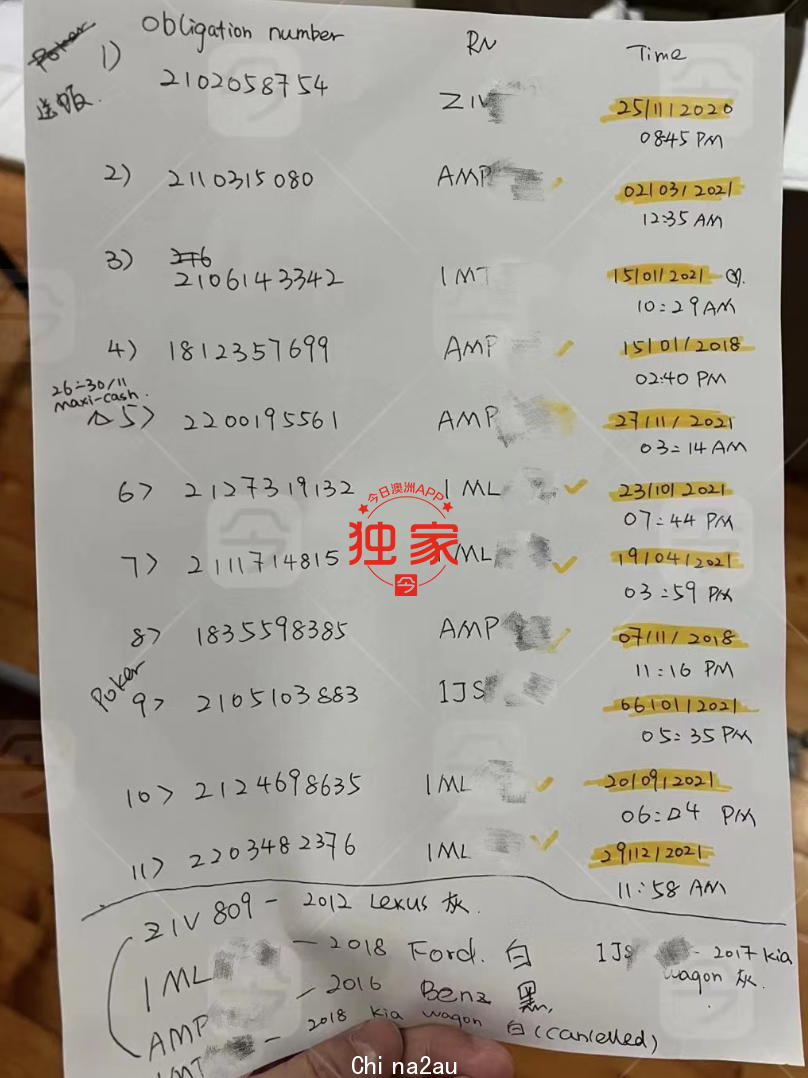 Obligation number RN Time
Poker
1) 2102058754 ZIV 25/11/2020
送饭. 08:45 PM
2) 2110315080 AMP 02/03/2021
12:35 AM
3) 2106143342 1MT 15/01/2021
10:29 AM
4) 1812357699 AMP 15/01/2018
02:40 PM
26-30/11
maxi-cash.
5> 2200195561 AMP 27/11/2021
03:14 AM
6> 2127319132 1ML 23/10/2021
07:44 PM
今日澳洲APP
独家
今
7> 2111714815 1ML 19/04/2021
03:59 PM
8> 1835598385 AMP 07/11/2018
11:16 PM
Poker
9> 2105103883 1JS 06/01/2021
05:35 PM
10> 2124698635 1ML 20/09/2021
06:04 PM
11> 2203482376 1ML 29/12/2021
11:58 AM
ZIV 809 - 2012 Lexus 灰.
1ML - 2018 Ford. 白
1JS - 2017 kia wagon 灰.
AMP - 2016 Benz 黑,
1MT - 2018 kia wagon 白 (cancelled)
China2au